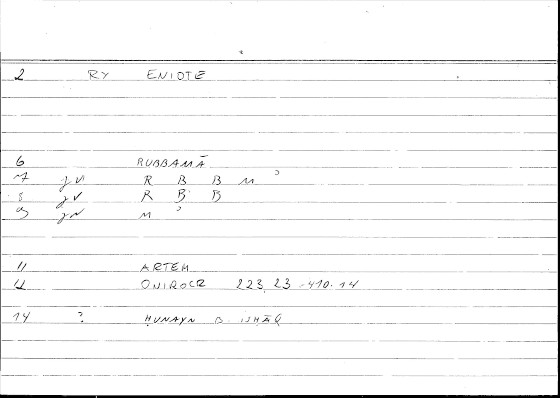 2 RY ENIOTE
6 RUBBAMĀ
7 JV R B B M ʾ
8 JV R B B
9 JV M ʾ
11 ARTEM
12 ONIROCR 223,23 - 410.14
14 ? ḤUNAYN B. ISḤĀQ